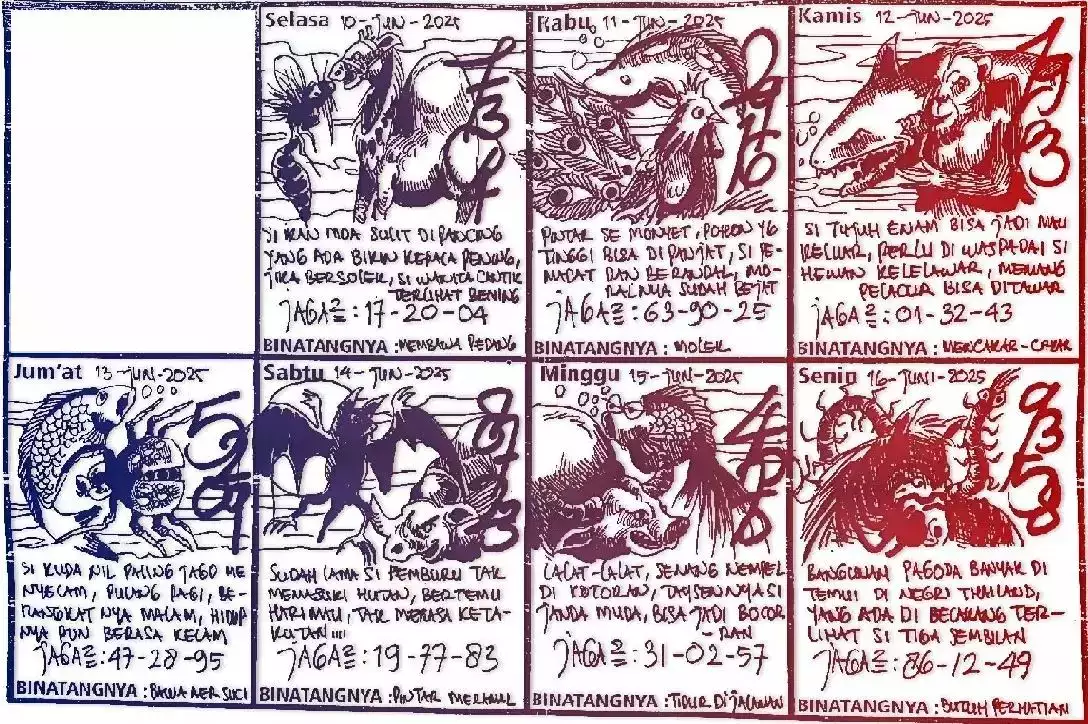 Selasa 10-JUN-2025
SI IKAN MOA SULIT DI PANCING
YANG ADA BIKIN KEPALA PENING,
JIKA BERSOLEK, SI WANITA CANTIK
TERLIHAT BENING
JAGA2=: 17-20-04
BINATANGNYA : MEMBAWA PEDANG
Rabu 11-JUN-2025
PINTAR SE MONYET, POHON YG
TINGGI BISA DI PANJAT, SI PE-
NJAHAT DAN BERANDAL, MO-
RALNYA SUDAH BEJAT
JAGA2=: 63-90-25
BINATANGNYA : MOLEK
Kamis 12-JUN-2025
SI TUJUH ENAM BISA JADI MAU
KELUAR, PERLU DI WASPADAI SI
HEWAN KELELAWAR, MEMANG
PELACUR BISA DITAWAR
JAGA2=: 01-32-43
BINATANGNYA : MENCAKAR-CAKAR
Jum'at 13-JUN-2025
SI KUDA NIL PALING JAGO ME
NYELAM, PULANG PAGI, BE-
RANGKAT NYA MALAM, HIDUP
NYA PUN BERASA KELAM
JAGA2=: 47-28-95
BINATANGNYA : BAWA AER SUCI
Sabtu 14-JUN-2025
SUDAH LAMA SI PEMBURU TAK
MEMASUKI HUTAN, BERTEMU
HARIMAU, TAK MERASA KETA-
KUTAN !!!!
JAGA2=: 19-77-83
BINATANGNYA : PINTAR MERAMAL
Minggu 15-JUN-2025
LALAT-LALAT, SENANG NEMPEL
DI KOTORAN,
JANDA MUDA, BISA JADI BOCOR
-RAN
JAGA2=: 31-02-57
BINATANGNYA : TIDUR DI JALANAN
Senin 16-JUNI-2025
BANGUNAN PAGODA BANYAK DI
TEMUI DI NEGRI THAILAND,
YANG ADA DI BELAKANG TER-
LIHAT SI TIGA SEMBILAN
JAGA2=: 86-12-49
BINATANGNYA : BUTUH PERHATIAN